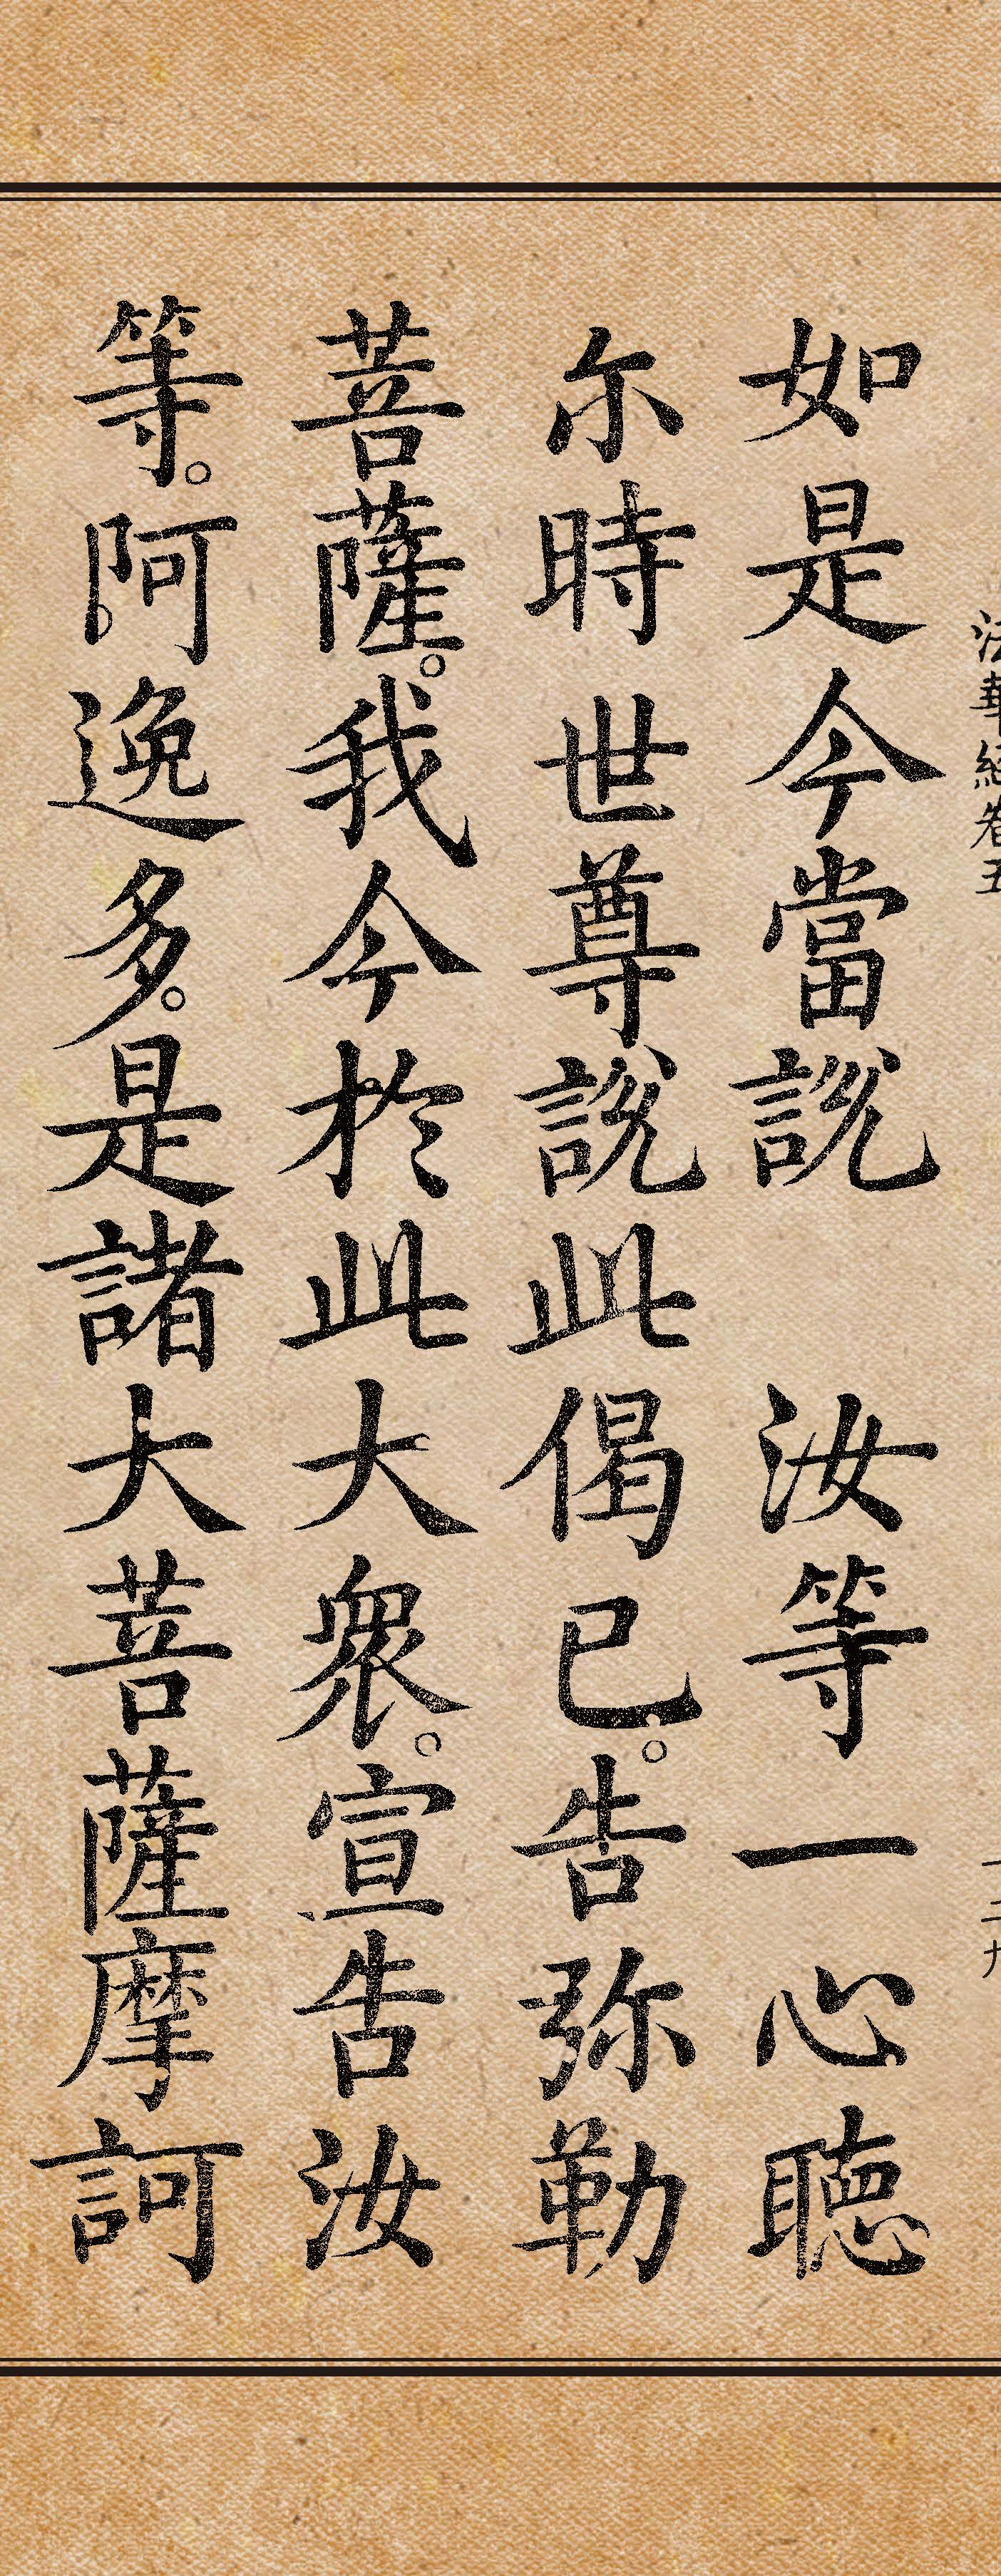 法華經卷五 一二九
如是今當說 汝等一心聽
尔時世尊說此偈已。告弥勒
菩薩。我今於此大衆。宣告汝
等。阿逸多。是諸大菩薩摩訶